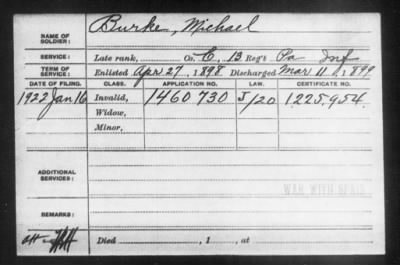 NAME OF SOLDIER: Burke, Michael
SERVICE: Late rank, Co. C, 13 Reg't Pa Inf
TERM OF SERVICE: Enlisted Apr 27, 1898 Discharged Mar 11, 1899
DATE OF FILING. CLASS. APPLICATION NO. LAW. CERTIFICATE NO.
1922 Jan 16 Invalid, 1460730 J/20 1.225.954.
Widow,
Minor,
ADDITIONAL SERVICES:
WAR WITH SPAIN
REMARKS:
Died , 1 , at